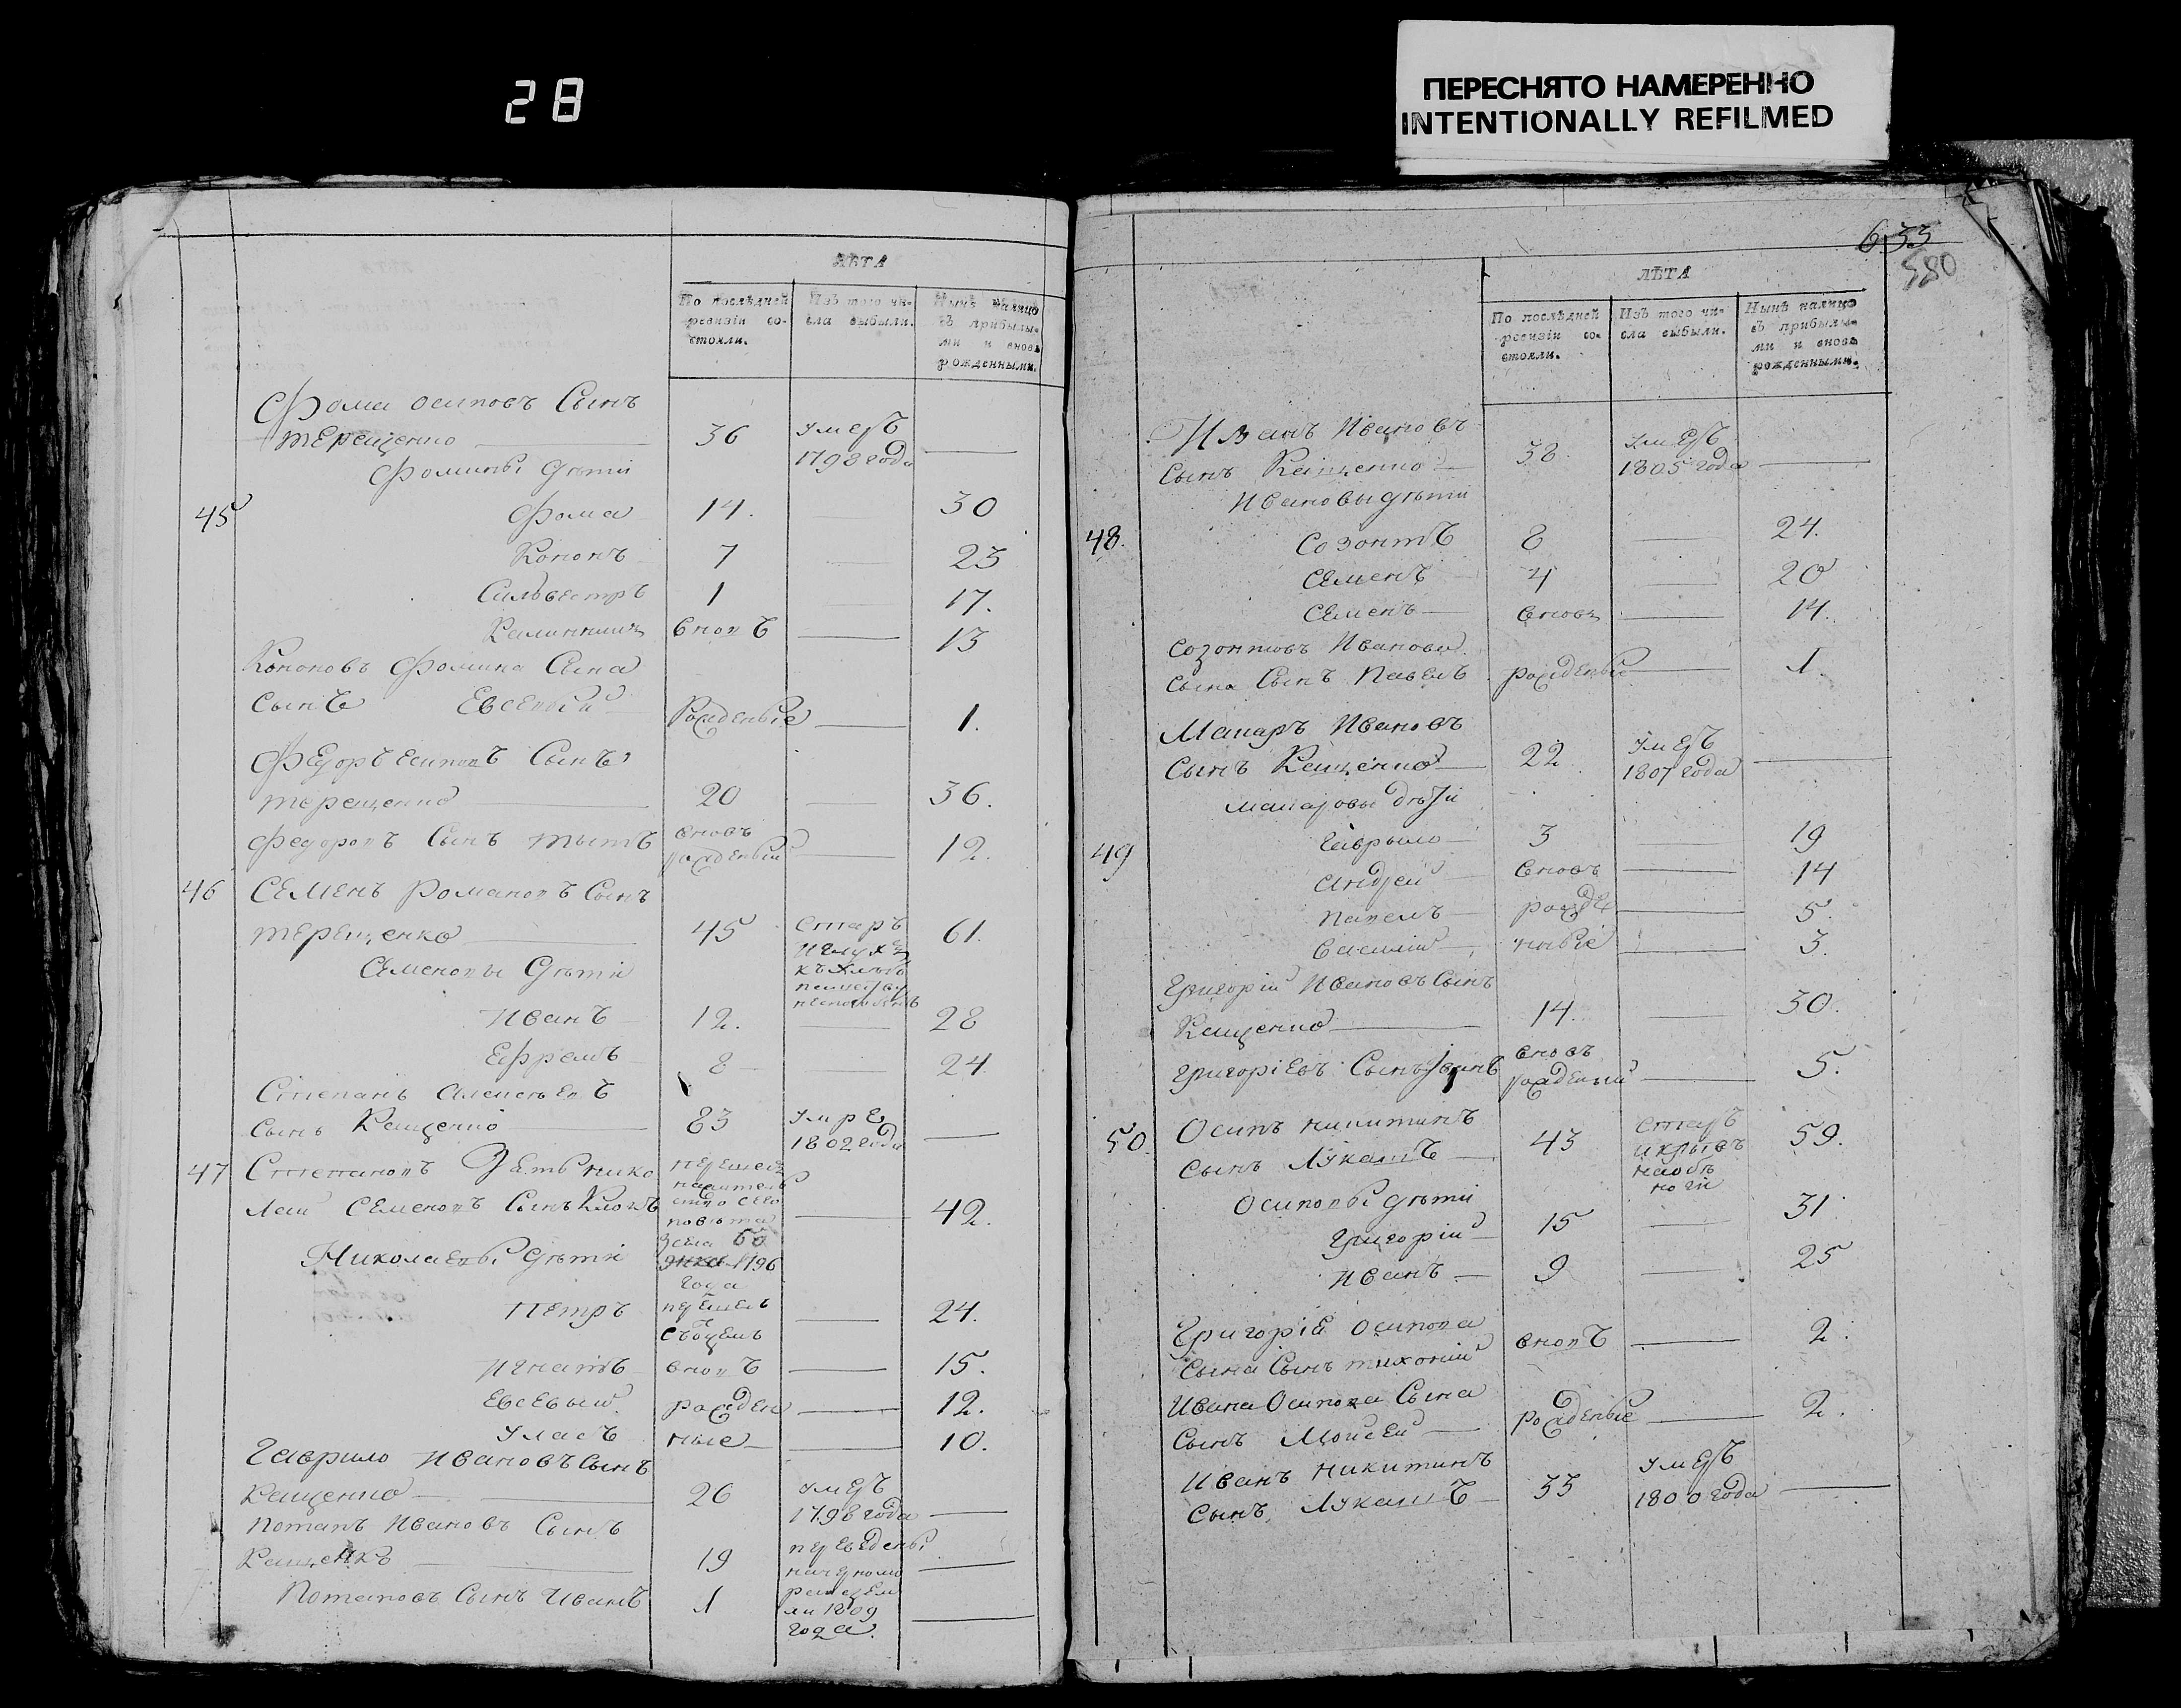 28
ПЕРЕСНЯТО НАМЕРЕННО
INTENTIONALLY REFILMED
ЛѢТА
По послѣдней ревизіи состояли.
Изъ того числа выбыли.
Нынѣ налицо съ прибылыми и вновь рожденными.
Фома осиповъ Сынъ
терещенко 36 умеръ
1798 года
Фомины дѣти
45 Фома 14. 30
Кононъ 7 23
Сильвестръ 1 17.
вновъ 13
Кононовъ Фомина Сына
Сынъ Евсевій рожденыіе 1.
Федоръ есиповъ Сынъ
терещенко 20 36.
Федоровъ Сынъ титъ вновъ
рожденый 12.
46 Семенъ Романовъ Сынъ
терещенко 45 старъ 61.
Семеновы дѣти
Иванъ 12. 28
Ефремъ 8 24
Степанъ
Сынъ Кащенко 83 умре
1802 года
47 Степановъ
Семеновъ Сынъ 42.
Николаевы дѣти 1796
года
Петръ перешелъ 24.
съоцемъ
Игнатъ вновъ 15.
Евсевый рожден 12.
Уласъ ные 10.
Гаврило Ивановъ Сынъ
Кащенко 26 умеръ
1798 года
Потапъ Ивановъ Сынъ
Кащенко 19 переведены
Потаповъ Сынъ Иванъ 1
1809
года
633
580
ЛѢТА
По послѣдней ревизіи состояли.
Изъ того числа выбыли.
Нынѣ налицо съ прибылыми и вновь рожденными.
Иванъ Ивановъ
Сынъ Кащенко 38 умеръ
1805 года
Ивановы дѣти
48. Созонтъ 8 24.
Семенъ 4 20
Семенъ вновъ 14.
Созонтовъ Иванова
Сына Сынъ Павелъ рожденые 1.
Макаръ Ивановъ
Сынъ Кащенко 22 умеръ
1807 года
макаровы дѣти
49 Гаврыло 3 19
Андрей вновъ 14
Павелъ рожде 5.
Василій ныіе 3.
Григорій Ивановъ Сынъ
Кащенко 14. 30.
Григоріевъ Сынъ Иванъ вновъ
рожденый 5.
50. Осипъ никитинъ
Сынъ Лукашъ 43 старъ 59.
наобѣ
ноги
Осиповы дѣти
Григорій 15 31
Иванъ 9 25
Григоріе Осипова
Сына Сынъ тихоній вновъ 2.
Ивана Осипова Сына
Сынъ Мойсей рожденые 2.
Иванъ никитинъ
Сынъ Лукашъ 33 умеръ
1800 года